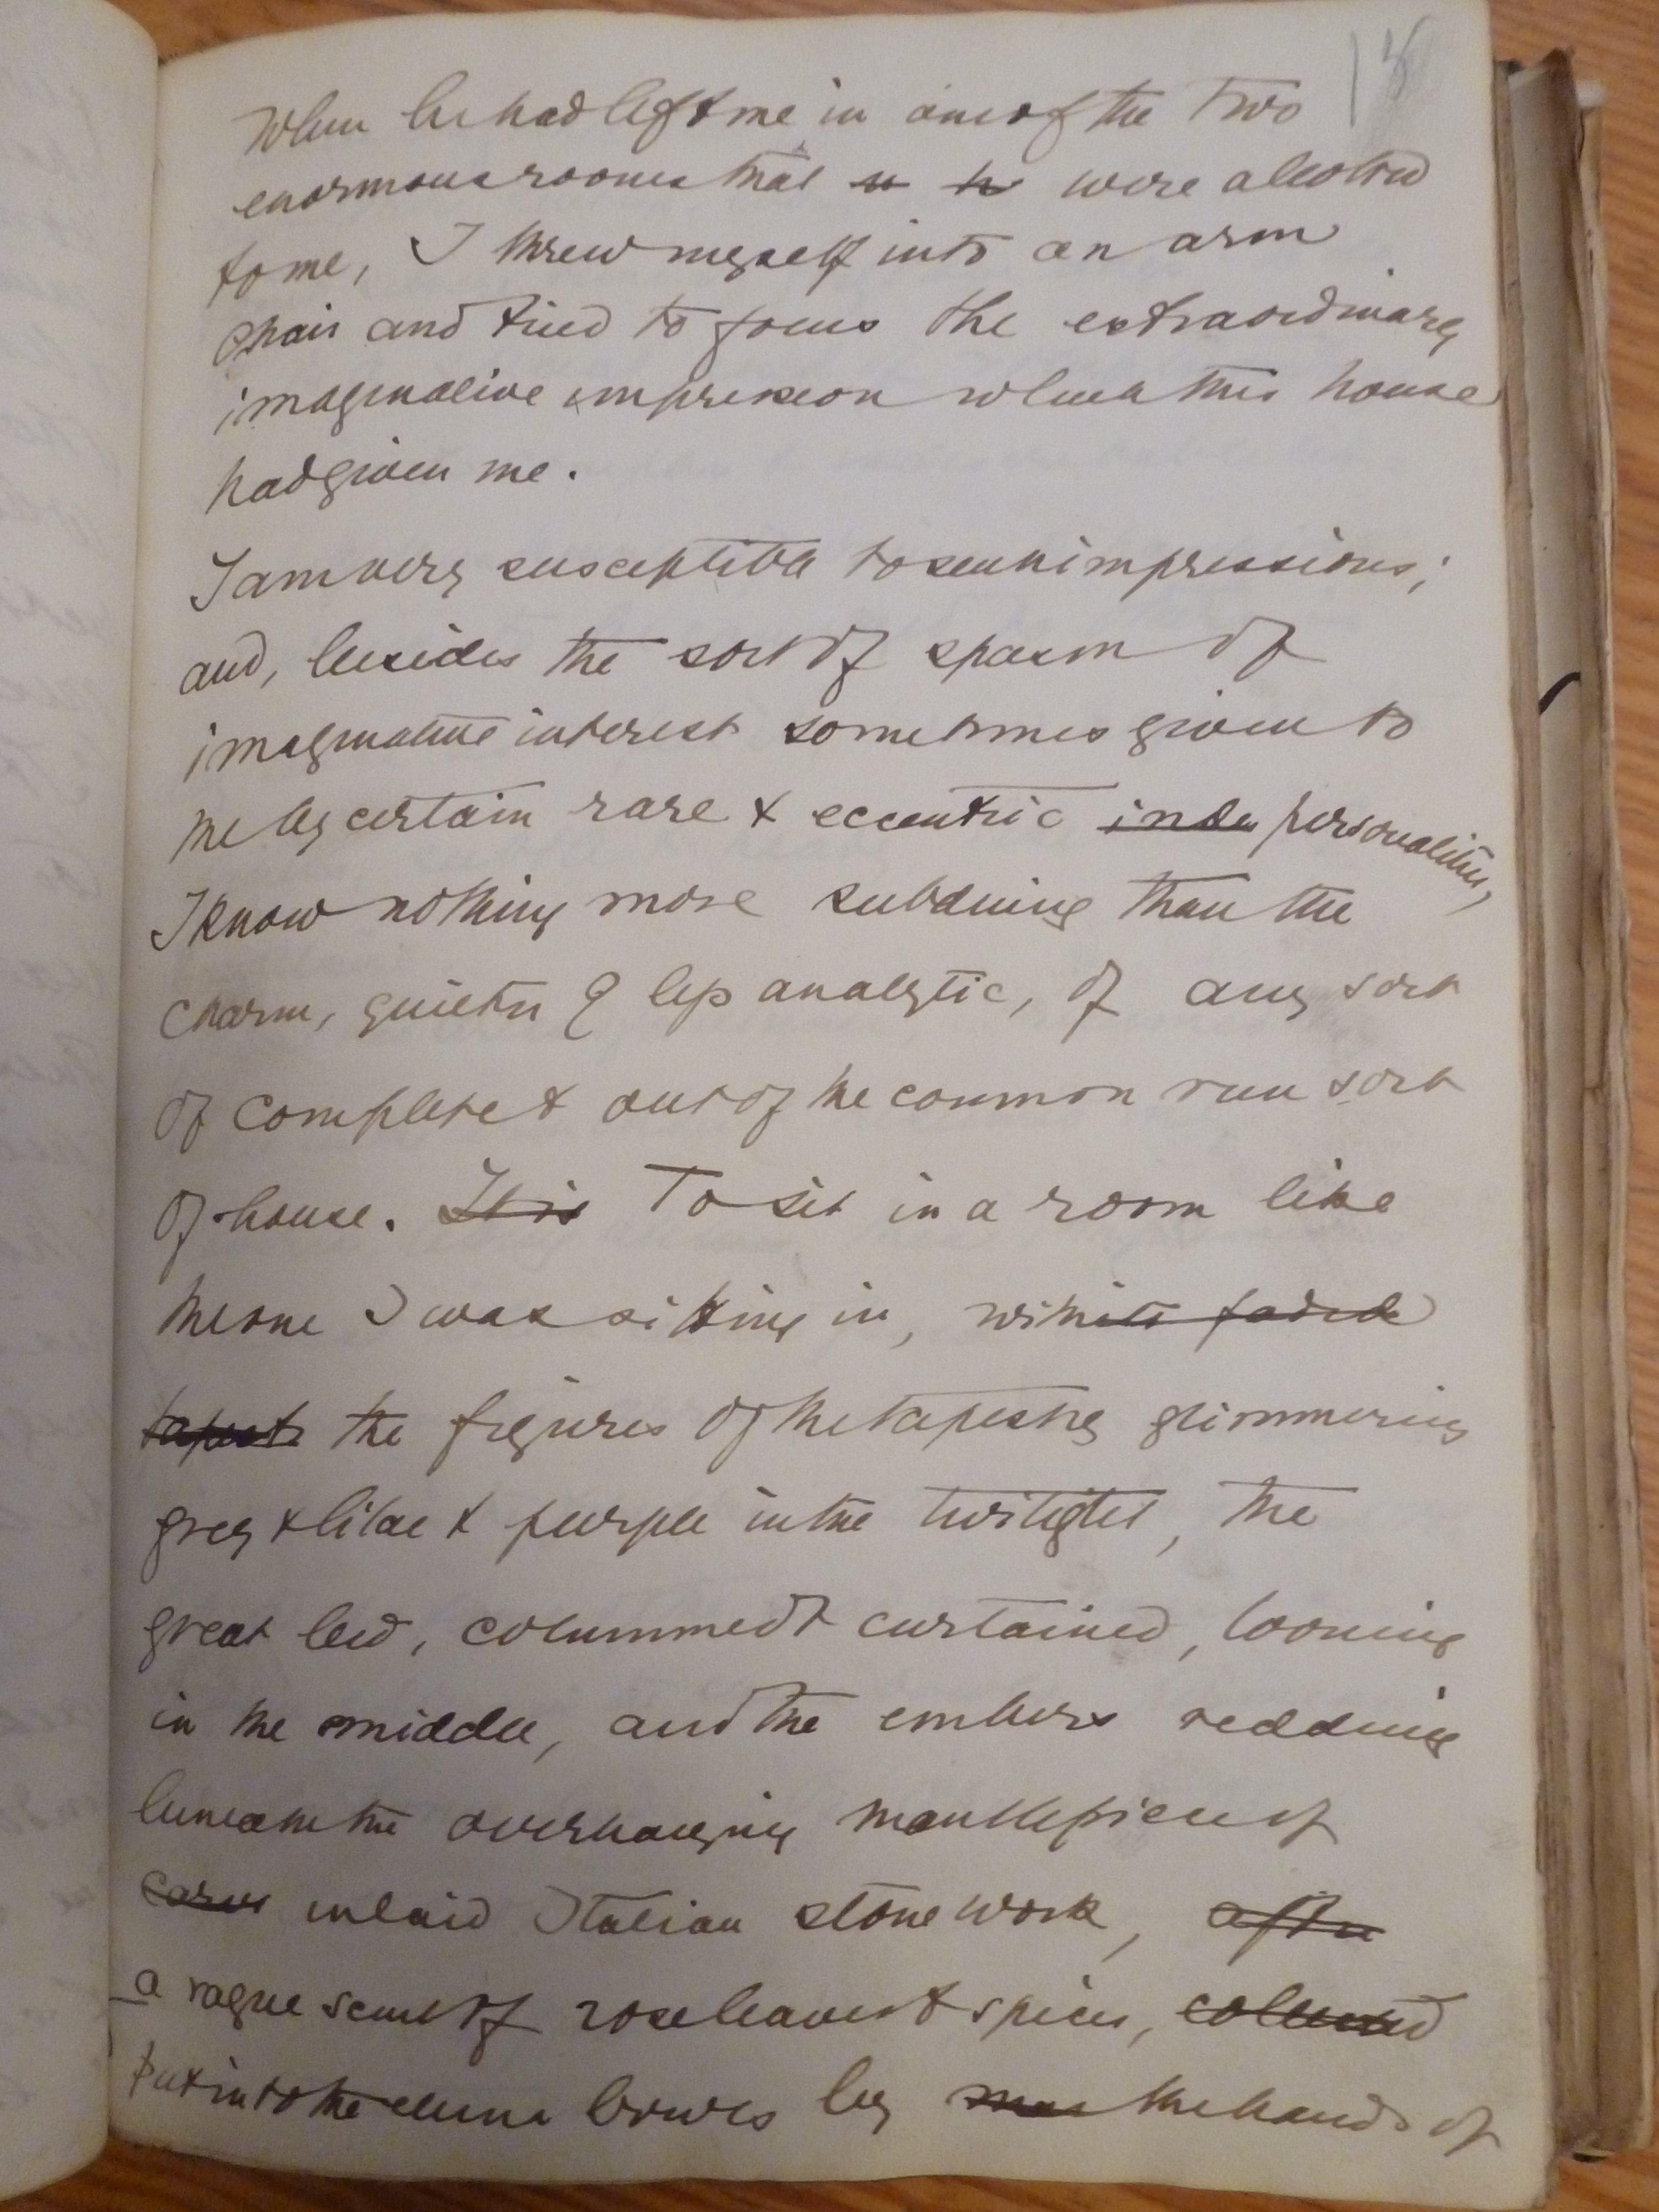 18
When he had left me in one of the two
enormous rooms that were allotted
to me, I threw myself into an arm
chair and tried to focus the extraordinary
imaginative impression which this house
had given me.
I am very susceptible to such impressions;
and, besides the sort of spasm of
imaginative interest sometimes given to
me by certain rare & eccentric personalities,
I know nothing more subduing than the
charm, quieter & less analytic, of any sort
of complete & out of the common run sort
of house. It is To sit in a room like
the one I was sitting in, with its faded
tapest the figures of the tapestry glimmering
grey & lilac & purple in the twilight, the
great bed, columned & curtained, looming
in the middle, and the embers reddening
beneath the overhanging mantlepiece of
carved inlaid Italian stone work, after
a vague scent of rose leaves & spices, collected
put into the china bowls by the hands of